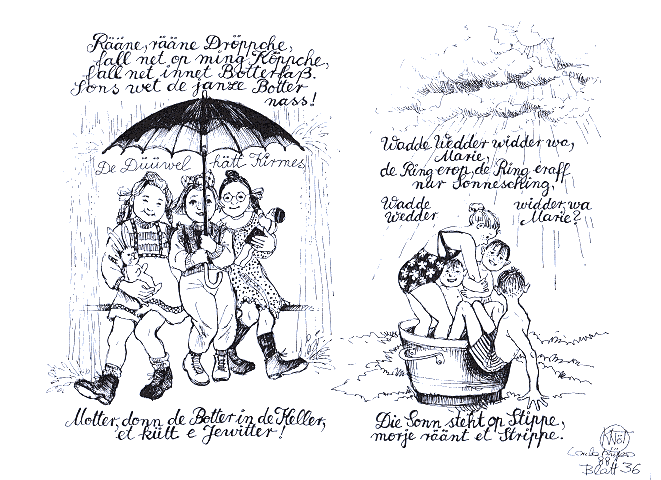 Rääne, rääne Dröppche,
fall net op ming Köppche,
fall net innet Botterfaß.
Sons wet de janze Botter
nass!
De Düüwel hätt Kirmes
Motter, donn de Botter in de Keller,
et kütt e Jewitter!
Wadde Wedder widder wa,
Marie,
de Ring erop, de Ring eraff
nur Sonnesching,
Wadde widder, wa
wedder Marie?
Die Sonn steht op Stippe,
morje räänt et Strippe.
Blatt 36